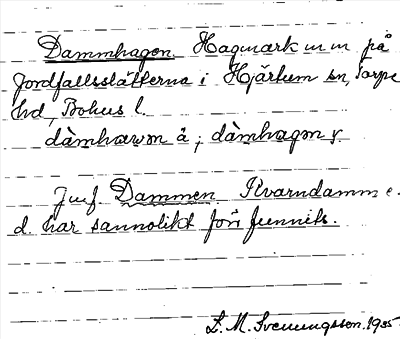 Dammhagen. Hagmark m m på
Jordfallsslätterna i Hjärtum sn, Torpe
hd, Bohus l.
dàmhawm å ; dàmhagm
Jmf. Dammen. Kvarndamm e.
d. har sannolikt förr funnits.
L. M. Svenungsson. 1935